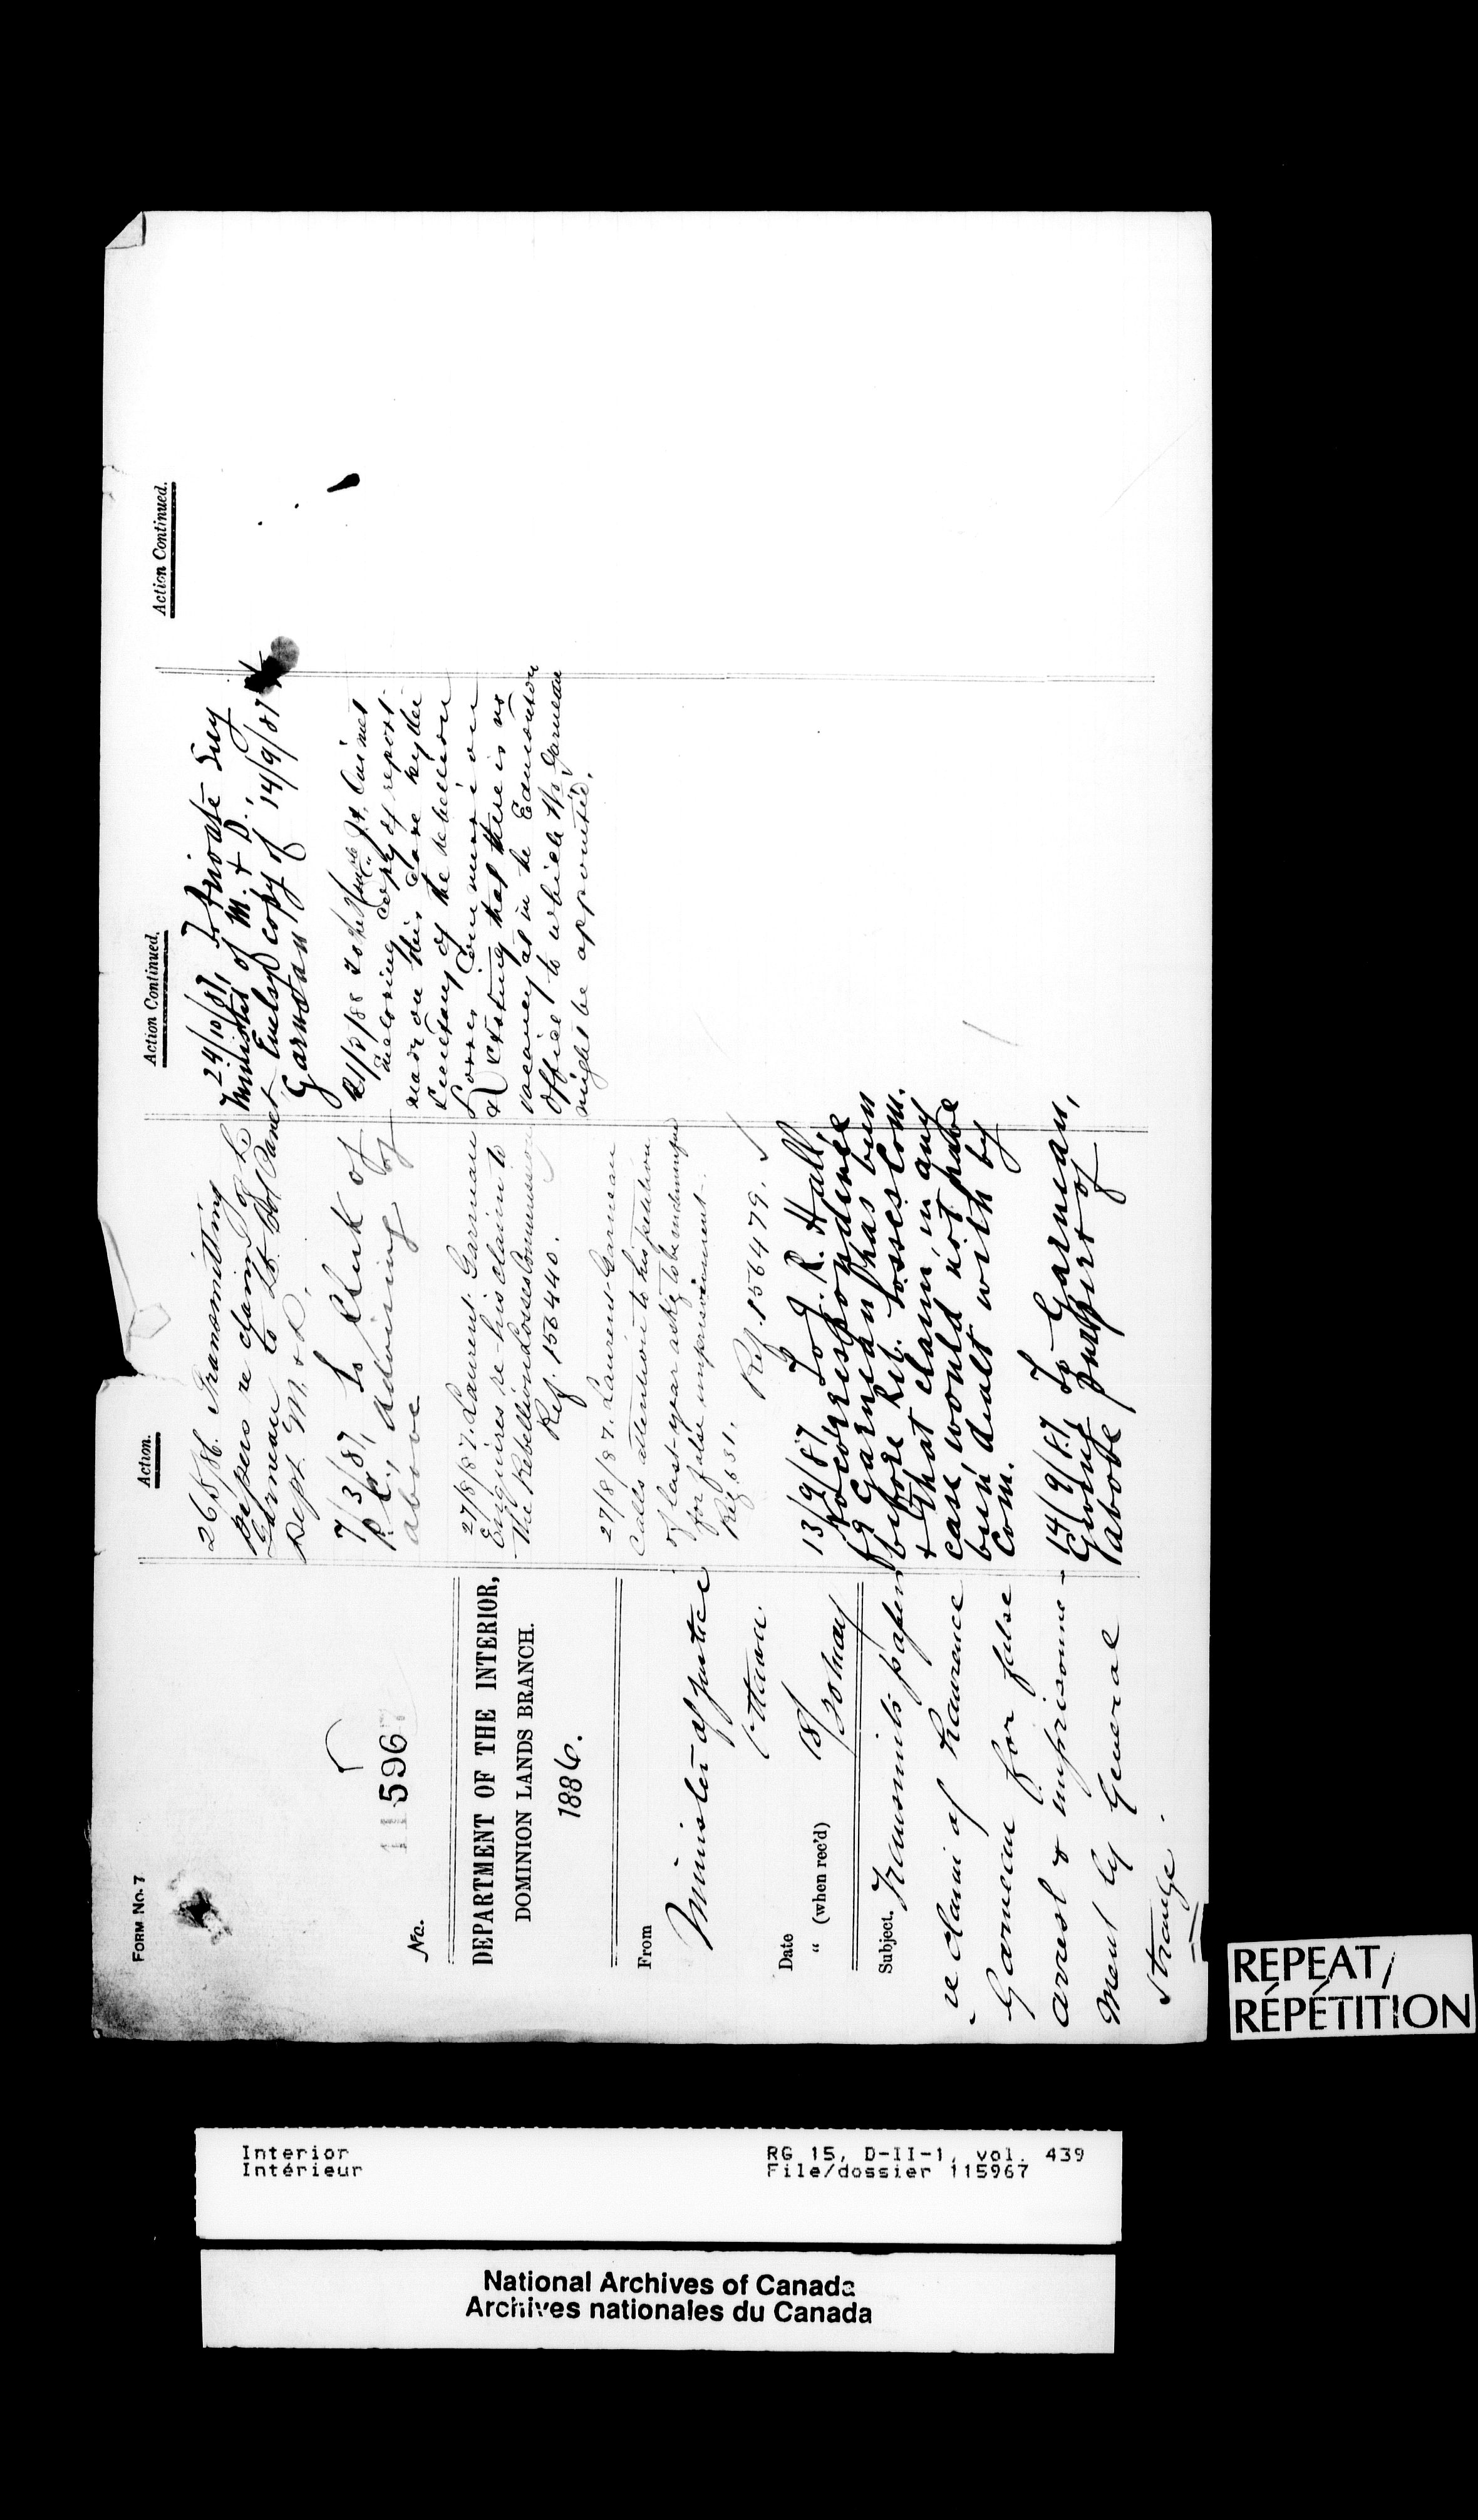 FORM No. 7
No. 115967
DEPARTMENT OF THE INTERIOR,
DOMINION LANDS BRANCH.
1886.
From
Minister of Justice
Ottawa
Date 18/
" (when rec'd) 20 May
Subject. Transmits papers
re claim of Laurence
Garneau for false
arrest & imprison-
ment by General
Strange.
Action.
26/5/86. Transmitting
papers re claim of L.
Garneau to Lt. Col Panet
Dept. M. & D.
7/3/87, To Clerk of
P.C., advising of
above
27/8/87. Laurent Garneau
Enquires re his claim to
the Rebellion Losses Commission
Ref. 156440.
27/8/87. Laurent Garneau
Calls attention to his petition
of last year ask'g to be indemnified
for false imprisonment.
Ref. 156479.
13/9/87, To J. R. Hall,
No correspondence
fg Garneau has been
before Reb. Losses Com.
& that claim, in any
case would not have
been dealt with by
Com.
14/9/87, To Garneau,
Giving purport of
above
Action Continued.
24/10/87, To Private Secy
Minister of M. & D.,
Enclosg copy of 14/9/87
Garneau
21/3/88 To Jt. Ouimet
Enclosing copy of report
made on this case by the
Secretary of the Rebellion
Losses Commission
& stating that there is no
vacancy as in the Edmonton
Office to which Mr. Garneau
might be appointed.
Action Continued.
REPEAT/
RÉPÉTITION
Interior
Intérieur
RG 15, D-II-1, vol. 439
File/dossier 115967
National Archives of Canada
Archives nationales du Canada